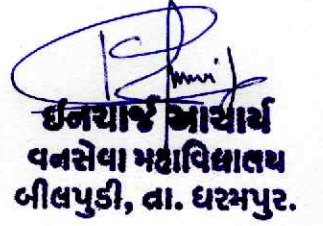 ઈનચાર્જ આચાર્ય
વનસેવા મહાવિદ્યાલય
બીલપુડી, તા. ધરમપુર.